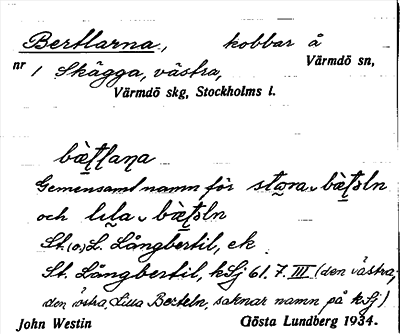 Bertlarna, kobbar å
nr 1 Skägga, västra, Värmdö sn,
Värmdö skg, Stockholms l.
bètlana
Gemensamt namn för stora bètsln
och lila bètsln
St. (o) L. Långbertil, ek.
St. Långbertil, kSj 61. 7. III (den västra,
den östra, Lilla Berteln, saknar namn på kSj)
John Westin Gösta Lundberg 1934.